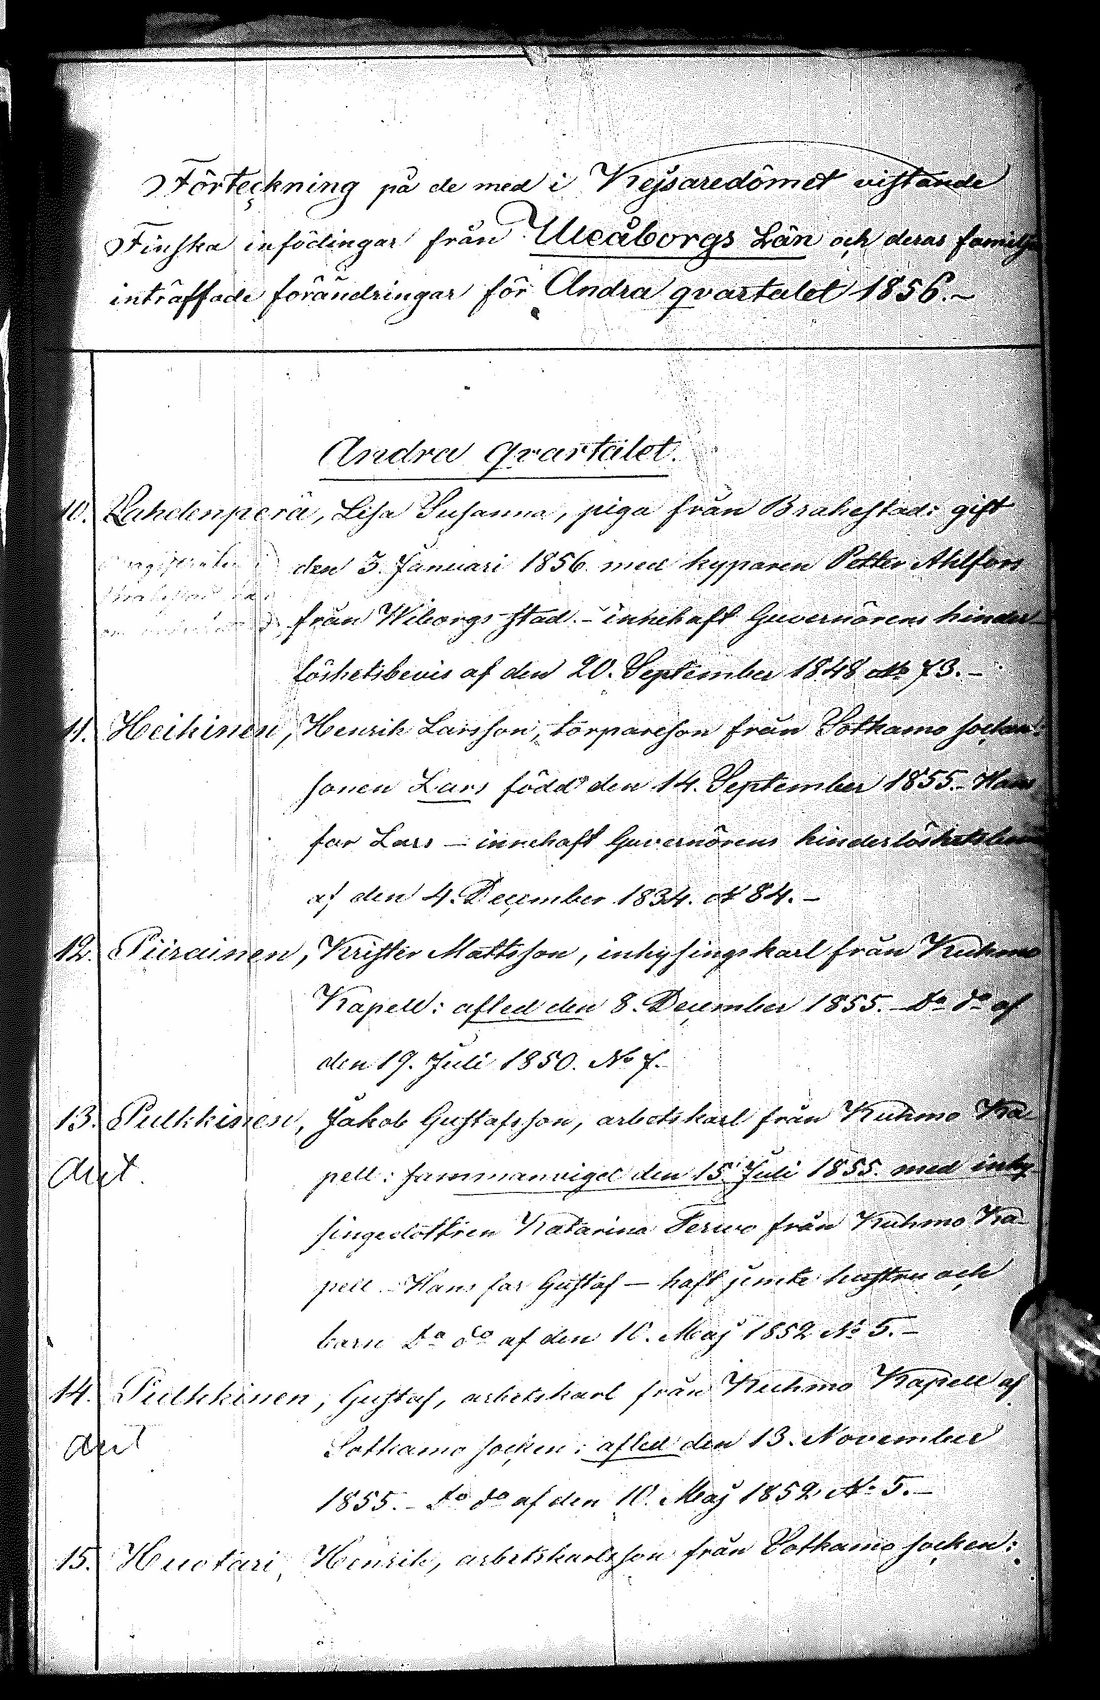 Förteckning på de med i Kejsaredömet vistande
Finska infödingar från Uleåborgs Län och deras familjer
inträffade förändringar för Andra qvartalet 1856.~
Andra qvartalet.
10. Lahdenperä, Lisa Susanna, piga från Brahestad: gift
den 3. Januari 1856. med kyparen Petter Ahlfors
från Wiborgs stad. – innehaft Guvernörens hinder-
löshetsbevis af den 20. September 1848 № 73. –
11. Heikinen, Henrik Larsson, torpareson från Sotkamo socken:
sonen Lars född den 14. September 1855. – Hans
far Lars – innehaft Guvernörens hinderlöshetsbevis
af den 4. December 1834. № 84. –
12. Piirainen, Krister Mattsson, inhysingskarl från Kuhmo
Kapell: afled den 8. December 1855. – Do do af
den 19. Juli 1850. No 7.
13. Pulkkinen, Jakob Gustafsson, arbetskarl från Kuhmo Ka-
pell: sammanvigd den 15. Juli 1855. med inhy-
singedottren Katarina Terwo från Kuhmo Ka-
pell. Hans far Gustaf – haft jemte hustru och
barn Do do af den 10. Maj 1852 No 5. –
14. Pulkkinen, Gustaf, arbetskarl från Kuhmo Kapell af
Sotkamo socken: afled den 13. November
1855. – Do do af den 10. Maj 1852 No 5. –
15. Huotari, Henrik, arbetskarlsson från Sotkamo socken: